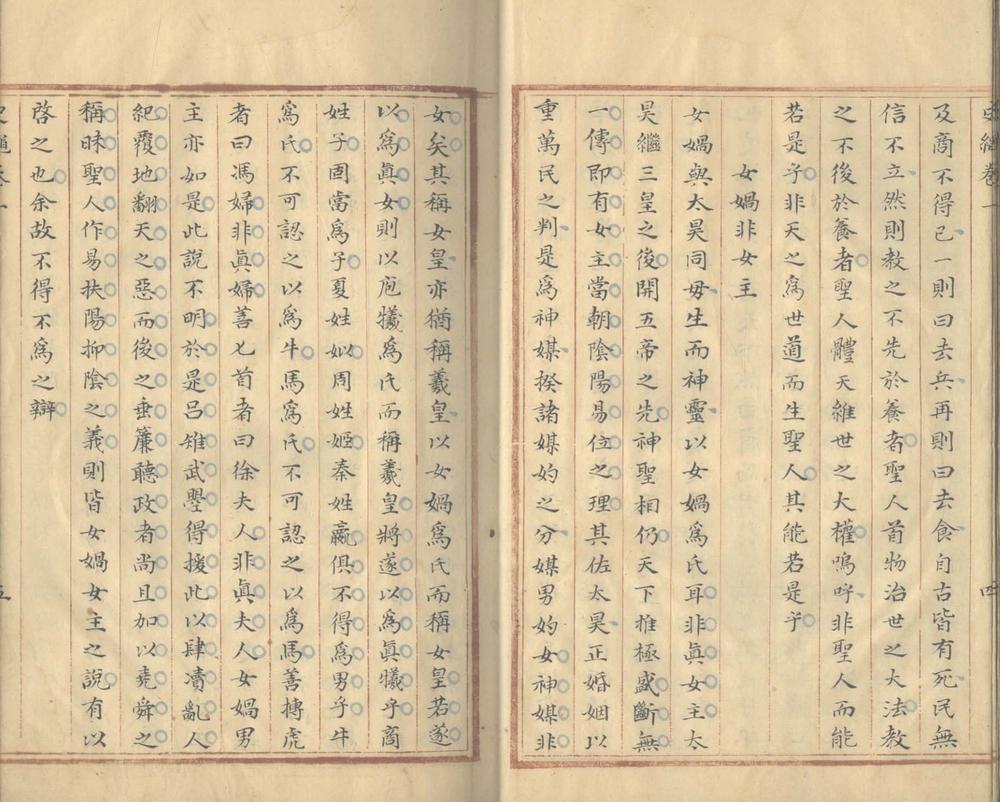 史繩卷一 四
及商不得已一則曰去兵再則曰去食自古皆有死民無
信不立然則教之不先於養者聖人首物治世之大法教
之不後於養者聖人體天維世之大權嗚呼非聖人而能
若是乎非天之為世道而生聖人其能若是乎
女媧非女主
女媧與太昊同母生而神靈以女媧為氏耳非真女主太
昊繼三皇之後開五帝之先神聖相仍天下雅極盛斷無
一傳即有女主當朝陰陽易位之理其佐太昊正婚姻以
重萬民之判是為神媒揆諸媒妁之分媒男妁女神媒非
女矣其稱女皇亦猶稱羲皇以女媧為氏而稱女皇若遂
以為真女則以庖犧為氏而稱羲皇將遂以為真犧乎商
姓子固當為子夏姓姒周姓姬秦姓嬴俱不得為男乎牛
為氏不可認之以為牛馬為氏不可認之以為馬善搏虎
者曰馮婦非真婦善匕首者曰徐夫人非真夫人女媧男
主亦如是此說不明於是呂雉武曌得援此以肆凟亂人
紀覆地翻天之惡而後之垂簾聽政者尚且加以堯舜之
稱昧聖人作易扶陽抑陰之義則皆女媧女主之說有以
啓之也余故不得不為之辯
史繩卷一 五